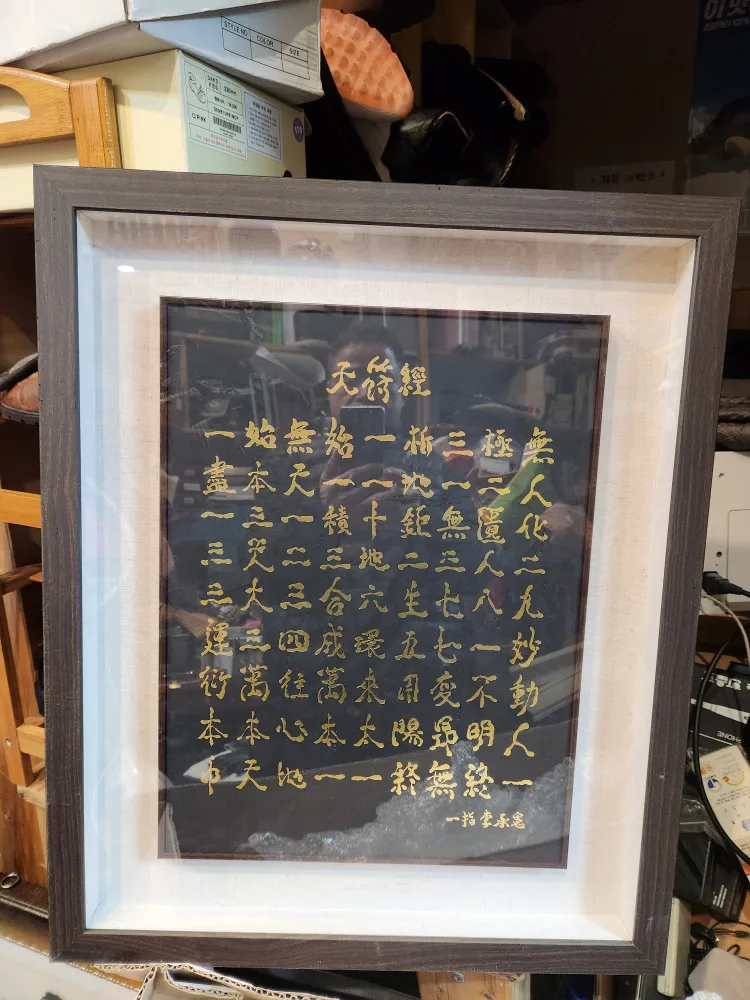 STYLE NO COLOR SIZE
DAKS
KIDS
C/PINK
天符經
一始無始一析三極無
盡本天一一地一二人
一三一積十鉅無匱化
三天二三地二三人二
三大三合六生七八九
運三四成環五七一妙
衍萬往萬來用変不動
本本心本太陽昻明人
中天地一一終無終一
一指 李承憲
PHONE